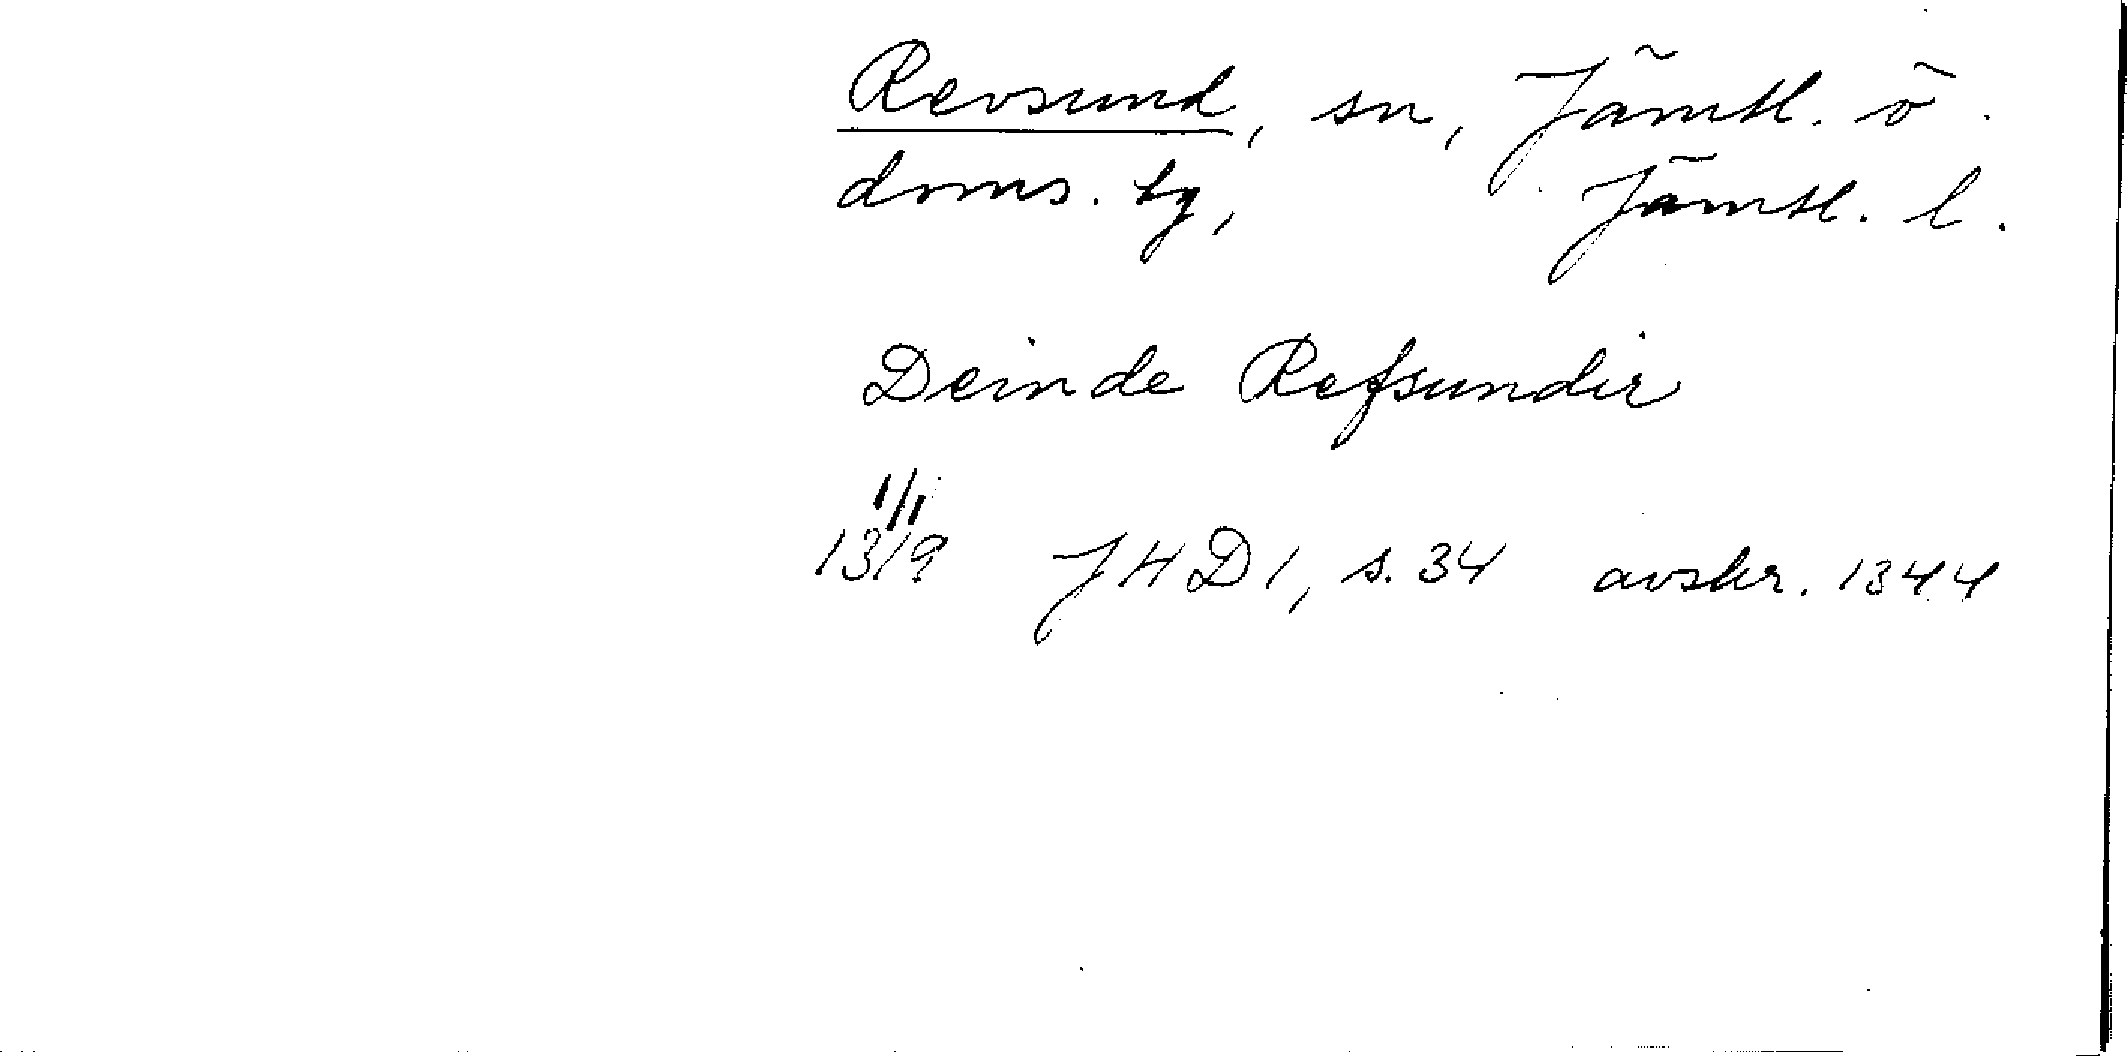 Revsund, sn, Jämtl. ö.
doms. tg, Jämtl. l.
Deinde Refsundir
1/1
1319 JHD 1, s. 34 avskr. 1344